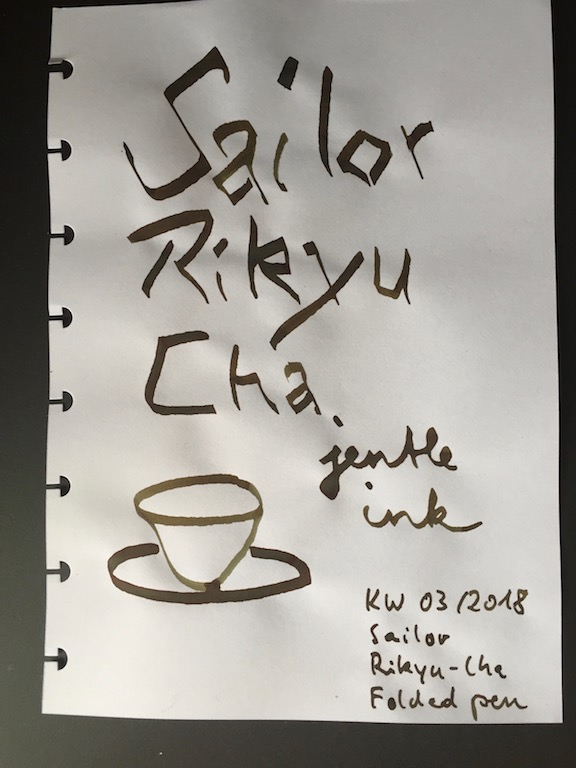 Sailor
Rikyu
Cha
jentle
ink
KW 03/2018
Sailor
Rikyu-Cha
Folded pen